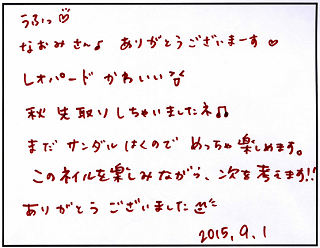 うふっ♡
なおみさん♪ ありがとうございまーす♡
レオパードかわいい
秋先取りしちゃいましたネ♫
まだサンダルはくのでめっちゃ楽しめます。
このネイルを楽しみながら、次を考えます!!
ありがとうございました
2015.9.1